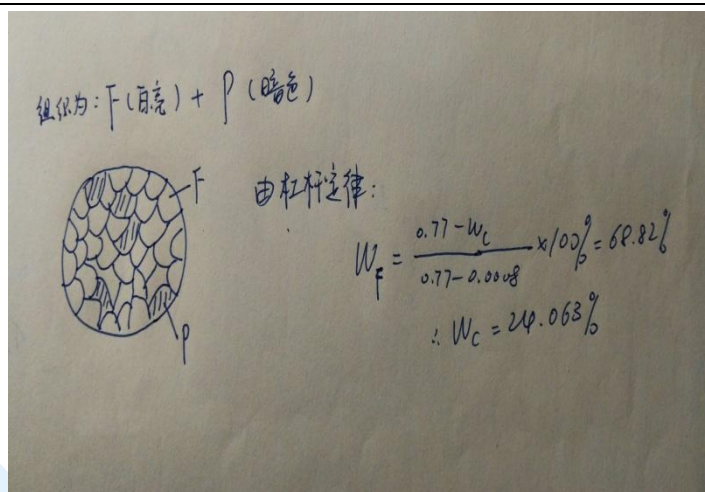 组织为：F（白亮）+ P（暗色）
F
P
由杠杆定律：
W_F = (0.77-W_C)/(0.77-0.0008) ×100% = 68.82%
∴ W_C = 24.063%